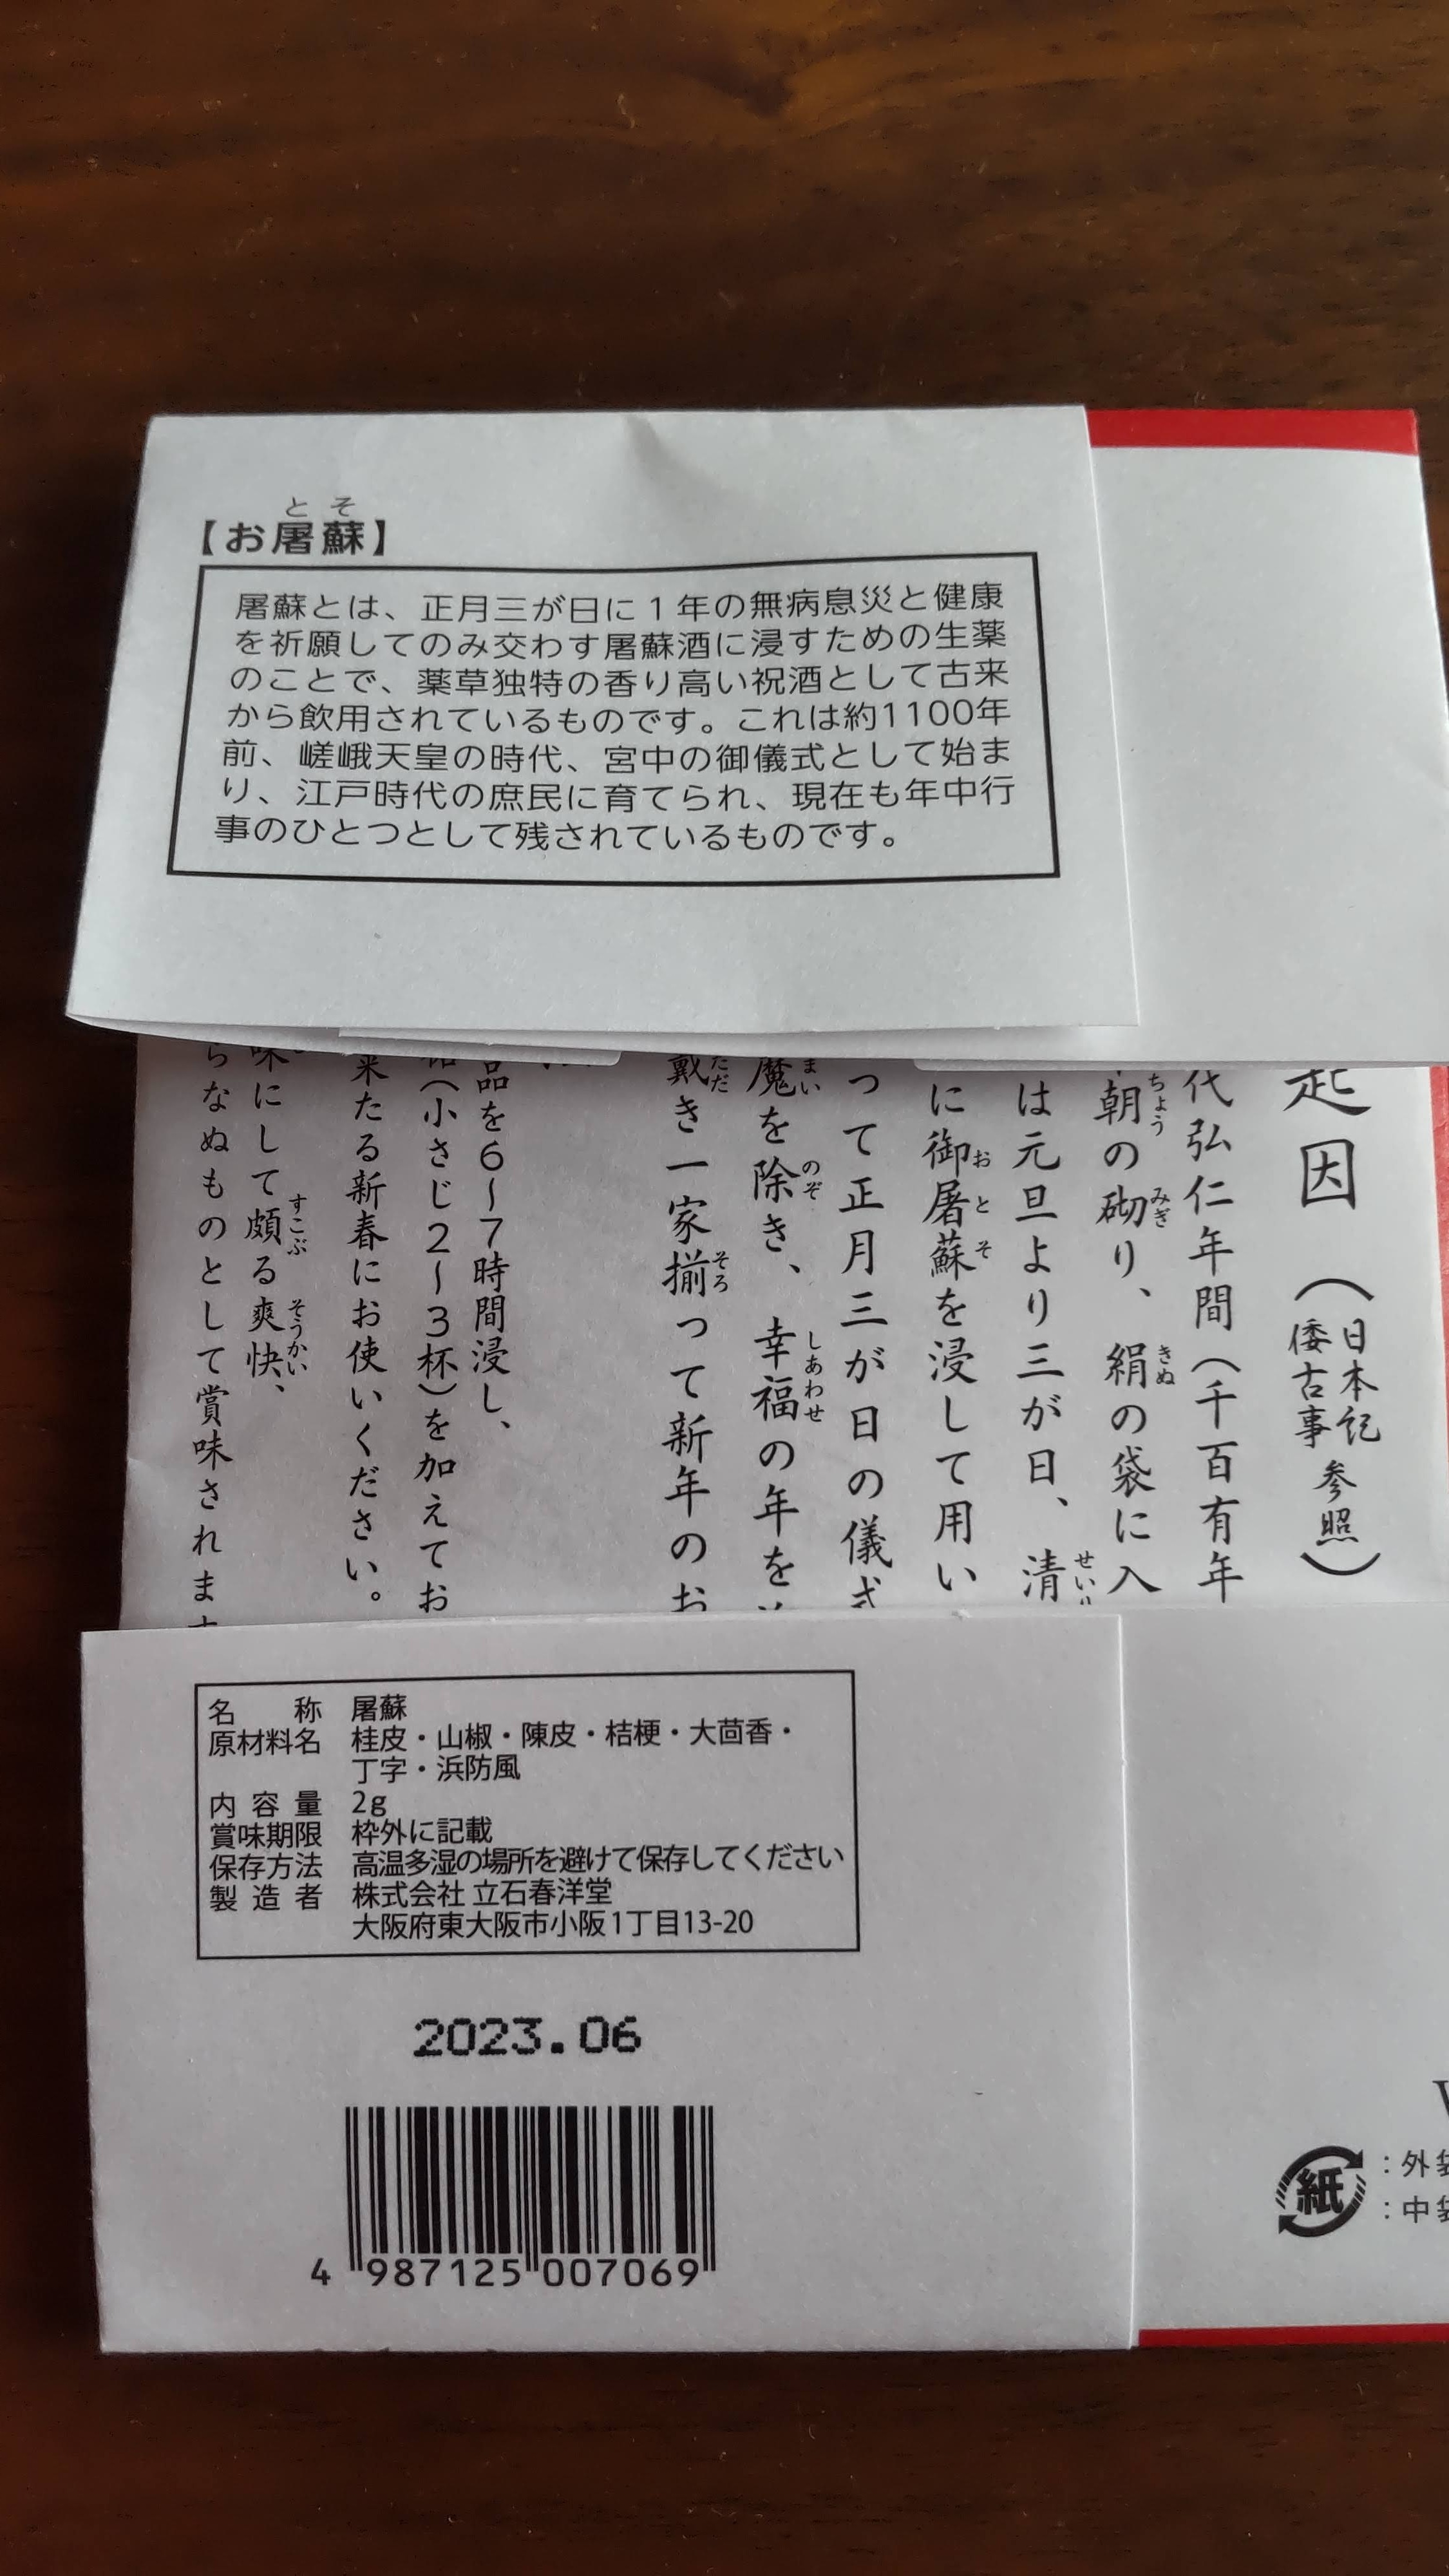 とそ
【お屠蘇】
屠蘇とは、正月三が日に1年の無病息災と健康
を祈願してのみ交わす屠蘇酒に浸すための生薬
のことで、薬草独特の香り高い祝酒として古来
から飲用されているものです。これは約1100年
前、嵯峨天皇の時代、宮中の御儀式として始ま
り、江戸時代の庶民に育てられ、現在も年中行
事のひとつとして残されているものです。
起因(日本記倭古事参照)
代弘仁年間(千百有年
朝の砌り、絹の袋に入
ちょう みぎ きぬ
は元旦より三が日、清
せい
に御屠蘇を浸して用い
お と そ
って正月三が日の儀式
魔を除き、幸福の年を
まい のぞ しあわせ
戴き一家揃って新年のお
ただ そろ
品を6〜7時間浸し、
(小さじ2〜3杯)を加えてお
来たる新春にお使いください。
味にして頗る爽快、
すこぶ そうかい
らなぬものとして賞味されます
名称 屠蘇
原材料名 桂皮・山椒・陳皮・桔梗・大茴香・
丁字・浜防風
内容量 2g
賞味期限 枠外に記載
保存方法 高温多湿の場所を避けて保存してください
製造者 株式会社 立石春洋堂
大阪府東大阪市小阪1丁目13-20
2023.06
4 987125 007069
紙
:外袋
:中袋